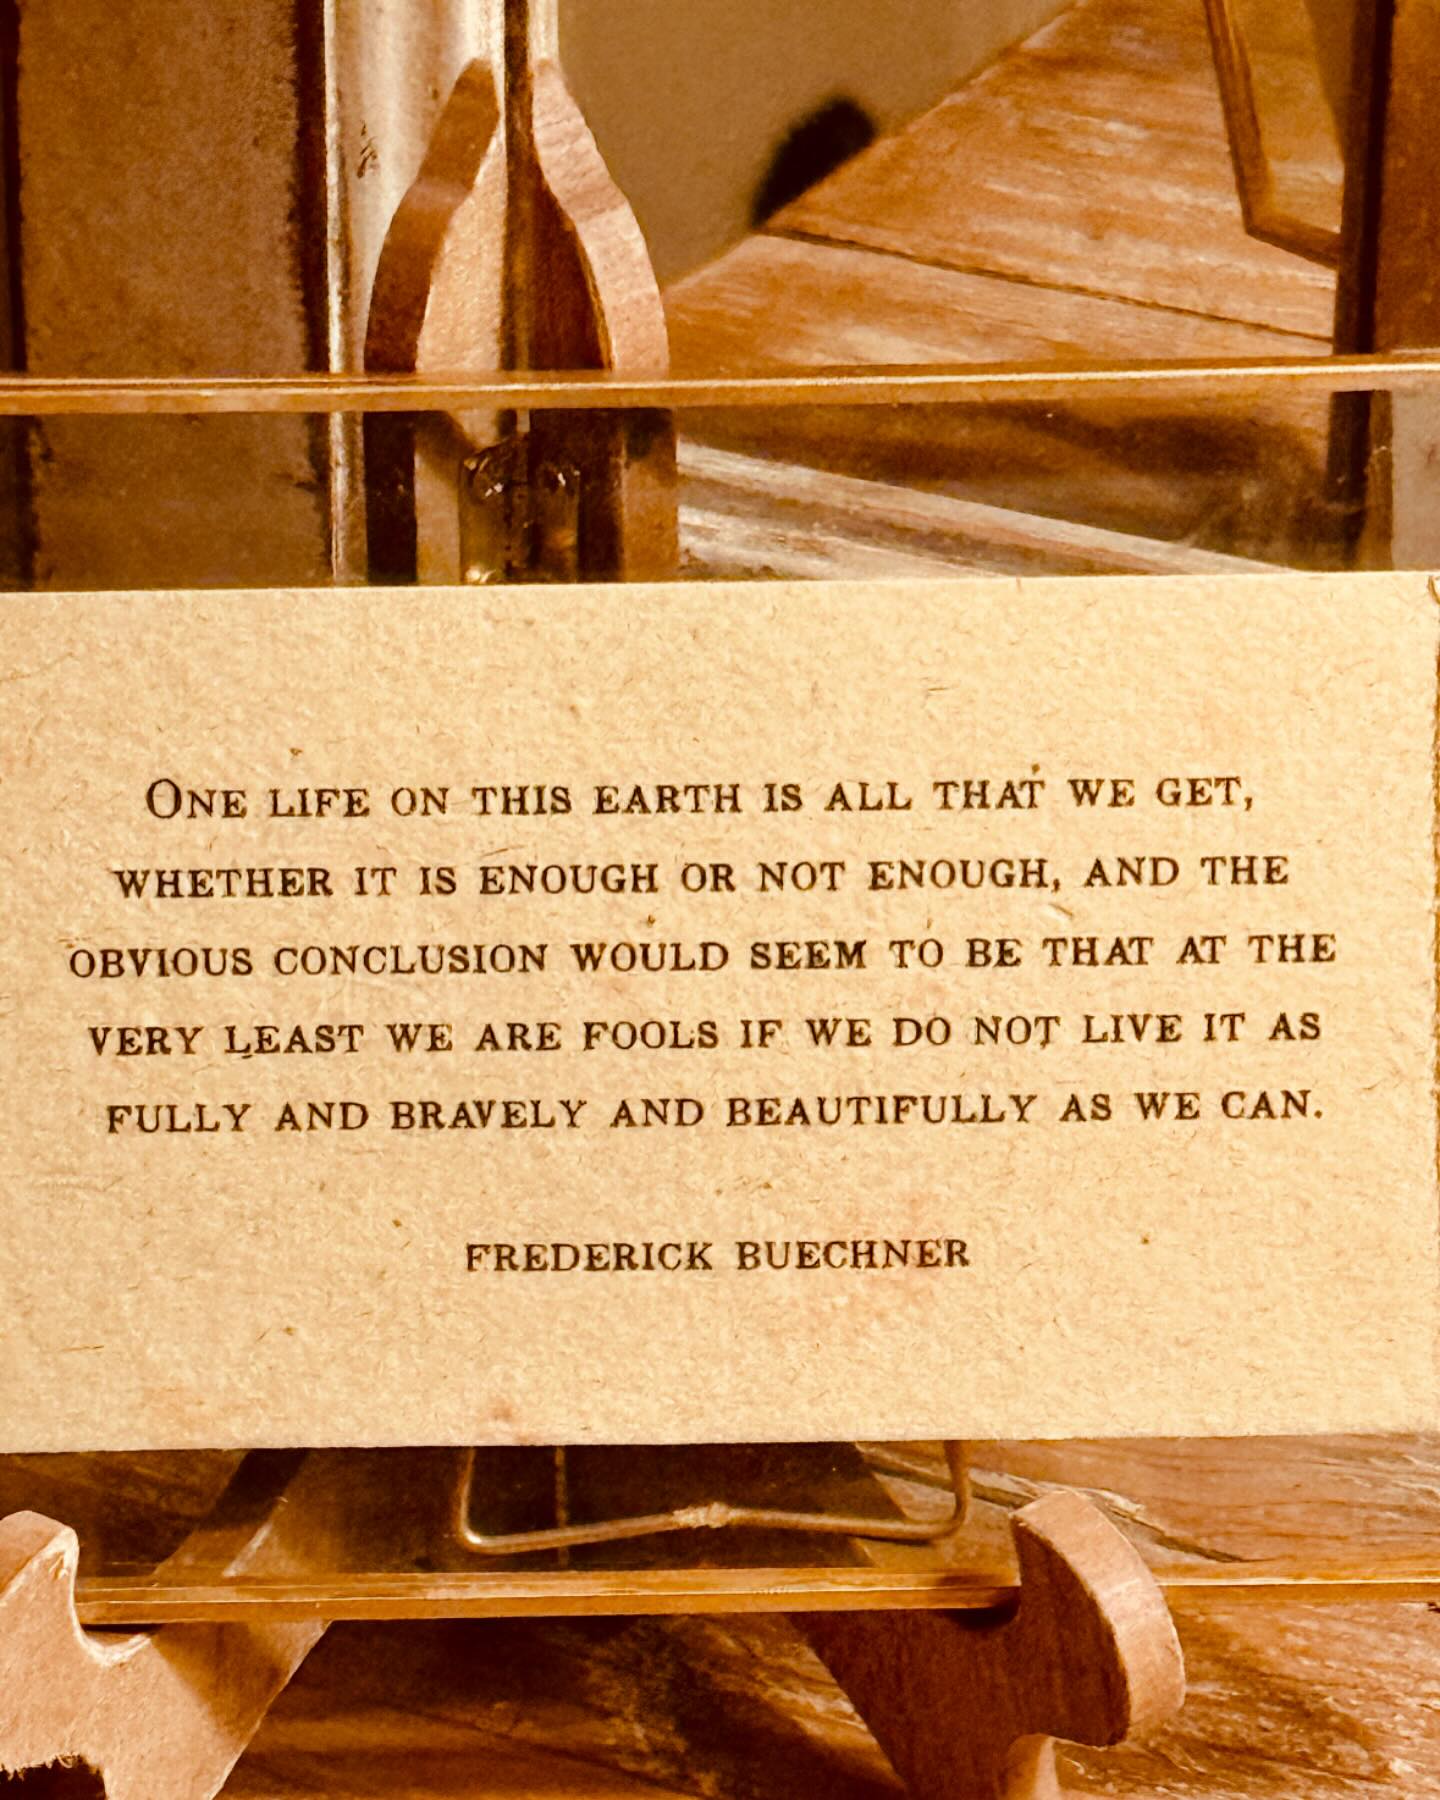 One life on this earth is all that we get,
whether it is enough or not enough, and the
obvious conclusion would seem to be that at the
very least we are fools if we do not live it as
fully and bravely and beautifully as we can.
Frederick Buechner